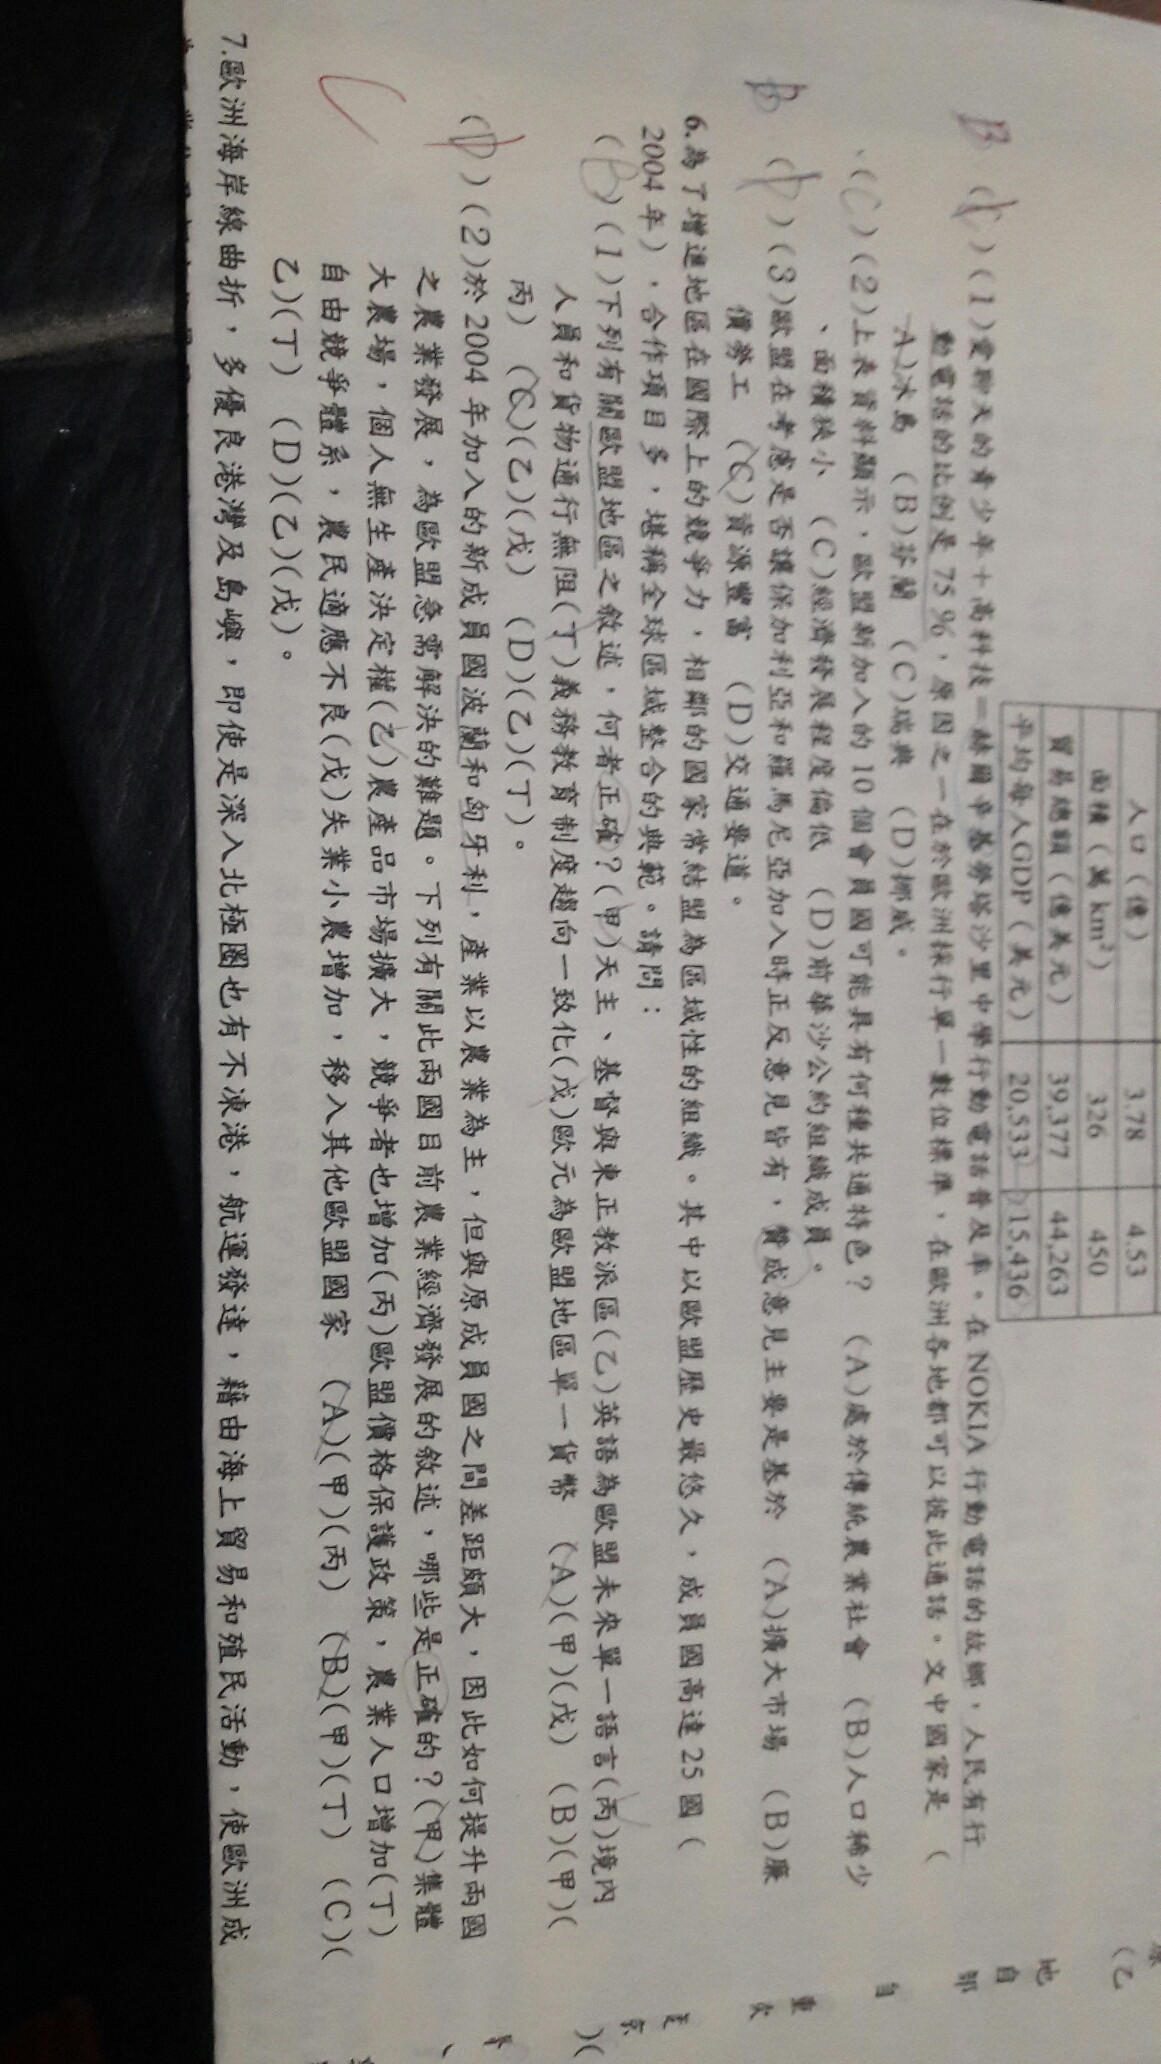 人口（億） 3.78 4.53
面積（萬 km²） 326 450
貿易總額（億美元） 39,377 44,263
平均每人GDP（美元） 20,533 15,436
B ( )(1)愛聊天的青少年＋高科技＝赫爾辛基勞塔沙里中學行動電話普及率。在 NOKIA 行動電話的故鄉，人民有行
動電話的比例是 75％，原因之一在於歐洲採行單一數位標準，在歐洲各地都可以彼此通話。文中國家是 (
A)冰島 (B)芬蘭 (C)瑞典 (D)挪威。
(C)(2)上表資料顯示，歐盟新加入的 10 個會員國可能具有何種共通特色？ (A)處於傳統農業社會 (B)人口稀少
、面積狹小 (C)經濟發展程度偏低 (D)前華沙公約組織成員。
B ( )(3)歐盟在考慮是否讓保加利亞和羅馬尼亞加入時正反意見皆有，贊成意見主要是基於 (A)擴大市場 (B)廉
價勞工 (C)資源豐富 (D)交通要道。
6.為了增進地區在國際上的競爭力，相鄰的國家常結盟為區域性的組織。其中以歐盟歷史最悠久，成員國高達 25 國 (
2004 年)，合作項目多，堪稱全球區域整合的典範。請問：
(B)(1)下列有關歐盟地區之敘述，何者正確？(甲)天主、基督與東正教派區(乙)英語為歐盟未來單一語言(丙)境內
人員和貨物通行無阻(丁)義務教育制度趨向一致化(戊)歐元為歐盟地區單一貨幣 (A)(甲)(戊) (B)(甲)(
丙) (C)(乙)(戊) (D)(乙)(丁)。
(D)(2)於 2004 年加入的新成員國波蘭和匈牙利，產業以農業為主，但與原成員國之間差距頗大，因此如何提升兩國
之農業發展，為歐盟急需解決的難題。下列有關此兩國目前農業經濟發展的敘述，哪些是正確的？(甲)集體
大農場，個人無生產決定權(乙)農產品市場擴大，競爭者也增加(丙)歐盟價格保護政策，農業人口增加(丁)
自由競爭體系，農民適應不良(戊)失業小農增加，移入其他歐盟國家 (A)(甲)(丙) (B)(甲)(丁) (C)(
乙)(丁) (D)(乙)(戊)。
7.歐洲海岸線曲折，多優良港灣及島嶼，即使是深入北極圈也有不凍港，航運發達，藉由海上貿易和殖民活動，使歐洲成